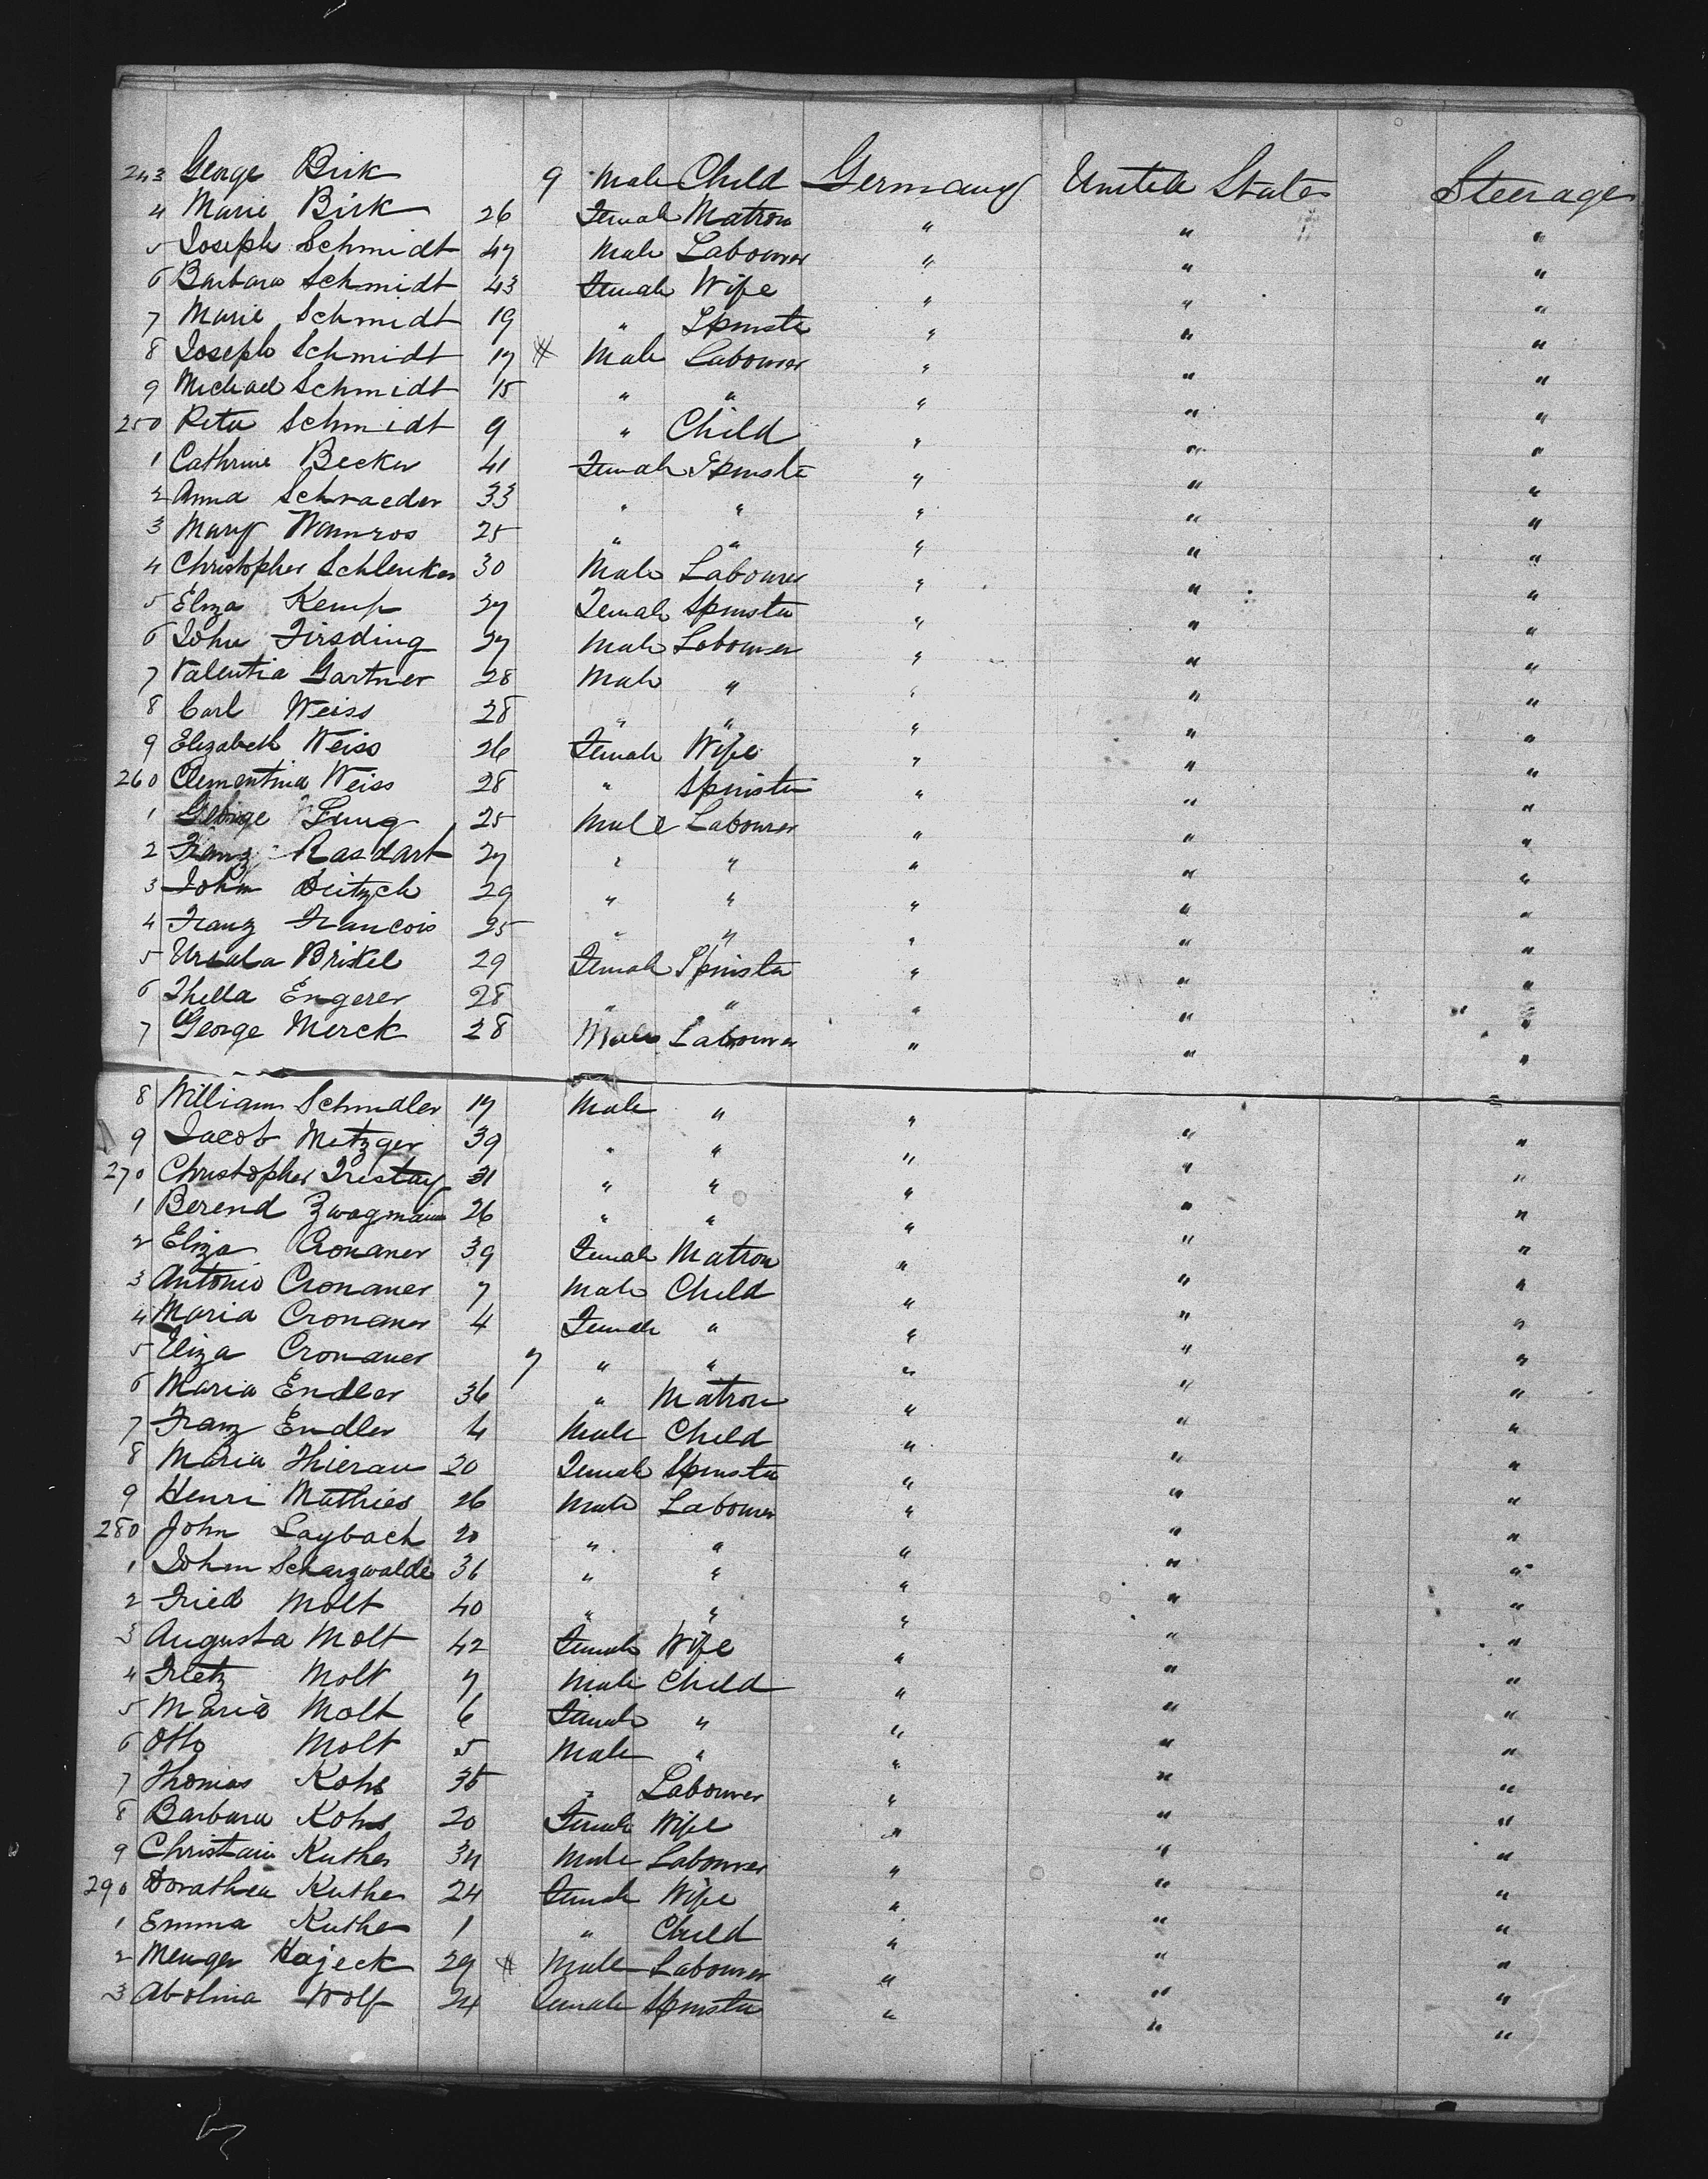 243 George Birk 9 Male Child Germany United States Steerage
4 Marie Birk 26 Female Matron " " "
5 Joseph Schmidt 47 Male Labourer " " "
6 Barbara Schmidt 43 Female Wife " " "
7 Marie Schmidt 19 " Spinster " " "
8 Joseph Schmidt 17 Male Labourer " " "
9 Michael Schmidt 15 " " " " "
250 Peter Schmidt 9 " Child " " "
1 Cathrine Becker 41 Female Spinster " " "
2 Anna Schraeder 33 " " " " "
3 Mary 25 " " " " "
4 Christopher Schlenker 30 Male Labourer " " "
5 Eliza Kemp 27 Female Spinster " " "
6 John Firsding 27 Male Labourer " " "
7 Valentia Gartner 28 Male " " " "
8 Carl Weiss 28 " " " " "
9 Elizabeth Weiss 26 Female Wife " " "
260 Clementina Weiss 28 " Spinster " " "
1 George 25 Male Labourer " " "
2 Franz Rasdart 27 " " " " "
3 John Deitzch 29 " " " " "
4 Franz Francois 25 " " " " "
5 Ursula Brikel 29 Female Spinster " " "
6 Thella Engerer 28 " " " " "
7 George Merck 28 Male Labourer " " "
8 William Schindler 17 Male " " " "
9 Jacob Metzger 39 " " " " "
270 Christopher 31 " " " " "
1 Berend 26 " " " " "
2 Eliza Cronauer 39 Female Matron " " "
3 Antonio Cronauer 7 Male Child " " "
4 Maria Cronauer 4 Female " " " "
5 Eliza Cronauer 7 " " " " "
6 Maria Endler 36 " Matron " " "
7 Franz Endler 4 Male Child " " "
8 Maria Thierau 20 Female Spinster " " "
9 Henri Mathies 26 Male Labourer " " "
280 John Laybach 20 " " " " "
1 John Scharzwalde 36 " " " " "
2 Fried Molt 40 " " " " "
3 Augusta Molt 42 Female Wife " " "
4 Fretz Molt 7 Male Child " " "
5 Maria Molt 6 Female " " " "
6 Otto Molt 5 Male " " " "
7 Thomas Kohs 35 " Labourer " " "
8 Barbara Kohs 20 Female Wife " " "
9 Christain Kuther 34 Male Labourer " " "
290 Dorathea Kuther 24 Female Wife " " "
1 Emma Kuther 1 " Child " " "
2 Menger Hajeck 29 Male Labourer " " "
3 Abolina Wolf 24 Female Spinster " " "